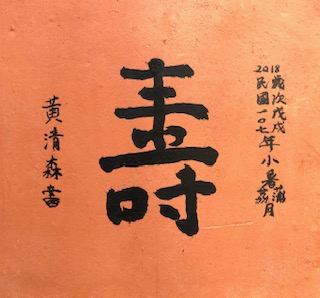 2018歲次戊戌
民國一〇七年小暑蒲荔月
壽
黃清森書